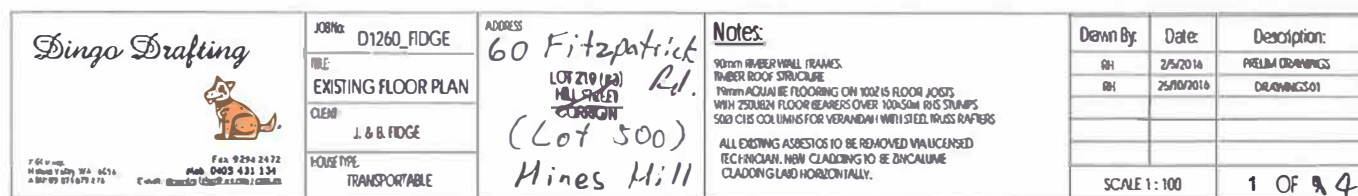 Dingo Drafting
Fax 9294 2472
Mob 0405 431 134
JOB No: D1260_FIDGE
TITLE:
EXISTING FLOOR PLAN
CLIENT
J. & B. FIDGE
HOUSE TYPE
TRANSPORTABLE
ADDRESS
60 Fitzpatrick Rd.
LOT 219 (#a)
HILL STREET
CORRIGIN
(Lot 500)
Hines Hill
Notes:
90mm TIMBER WALL FRAMES.
TIMBER ROOF STRUCTURE
19mm FLOORING ON FLOOR JOISTS
WITH FLOOR BEARERS OVER RHS STUMPS
CHS COLUMNS FOR VERANDAH WITH STEEL TRUSS RAFTERS
ALL EXISTING ASBESTOS TO BE REMOVED VIA LICENSED
TECHNICIAN. NEW CLADDING TO BE ZINCALUME
CLADDING LAID HORIZONTALLY.
Drawn By: Date: Description:
RH 2/5/2016 PRELIM DRAWINGS
RH 25/10/2016 DRAWINGS 01
SCALE 1 : 100 1 OF 4